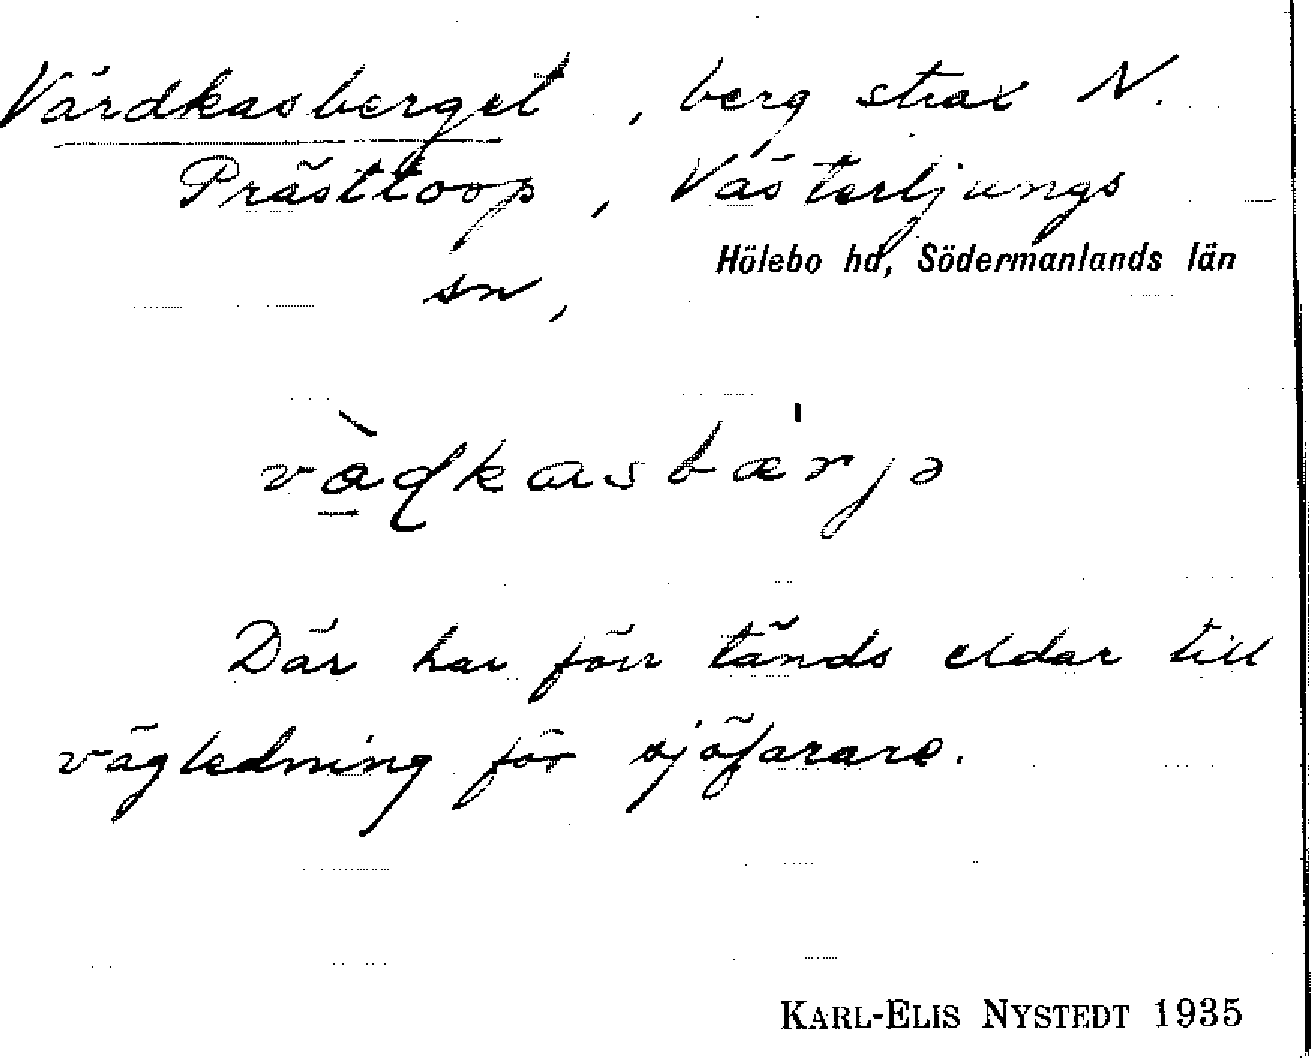 Vårdkasberget, berg strax N.
Prästtorp, Västerljungs
sn,
Hölebo hd, Södermanlands län
vàḍkasbærjə
Där har förr tänds eldar till
vägledning för sjöfarare.
KARL-ELIS NYSTEDT 1935